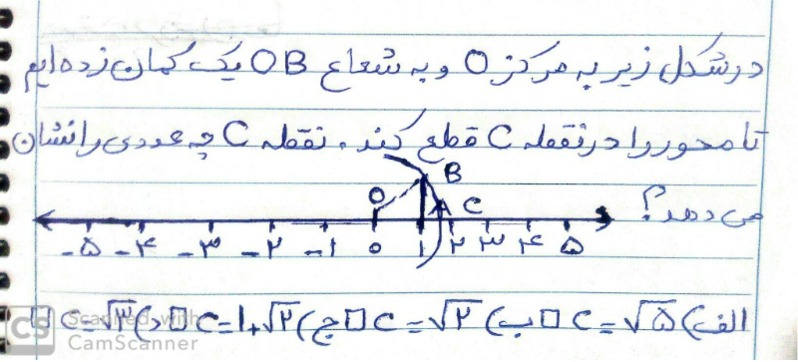 در شکل زیر به مرکز O و به شعاع OB یک کمان زده‌ایم
تا محور را در نقطه C قطع کند. نقطه C چه عددی را نشان
می دهد؟
B
O
C
-۵ -۴ -۳ -۲ -۱ ۰ ۱ ۲ ۳ ۴ ۵
الف) C = √۵ □ ب) C = √۲ □ ج) C = ۱+√۲ □ د) C = √۳ □
CS Scanned with
CamScanner